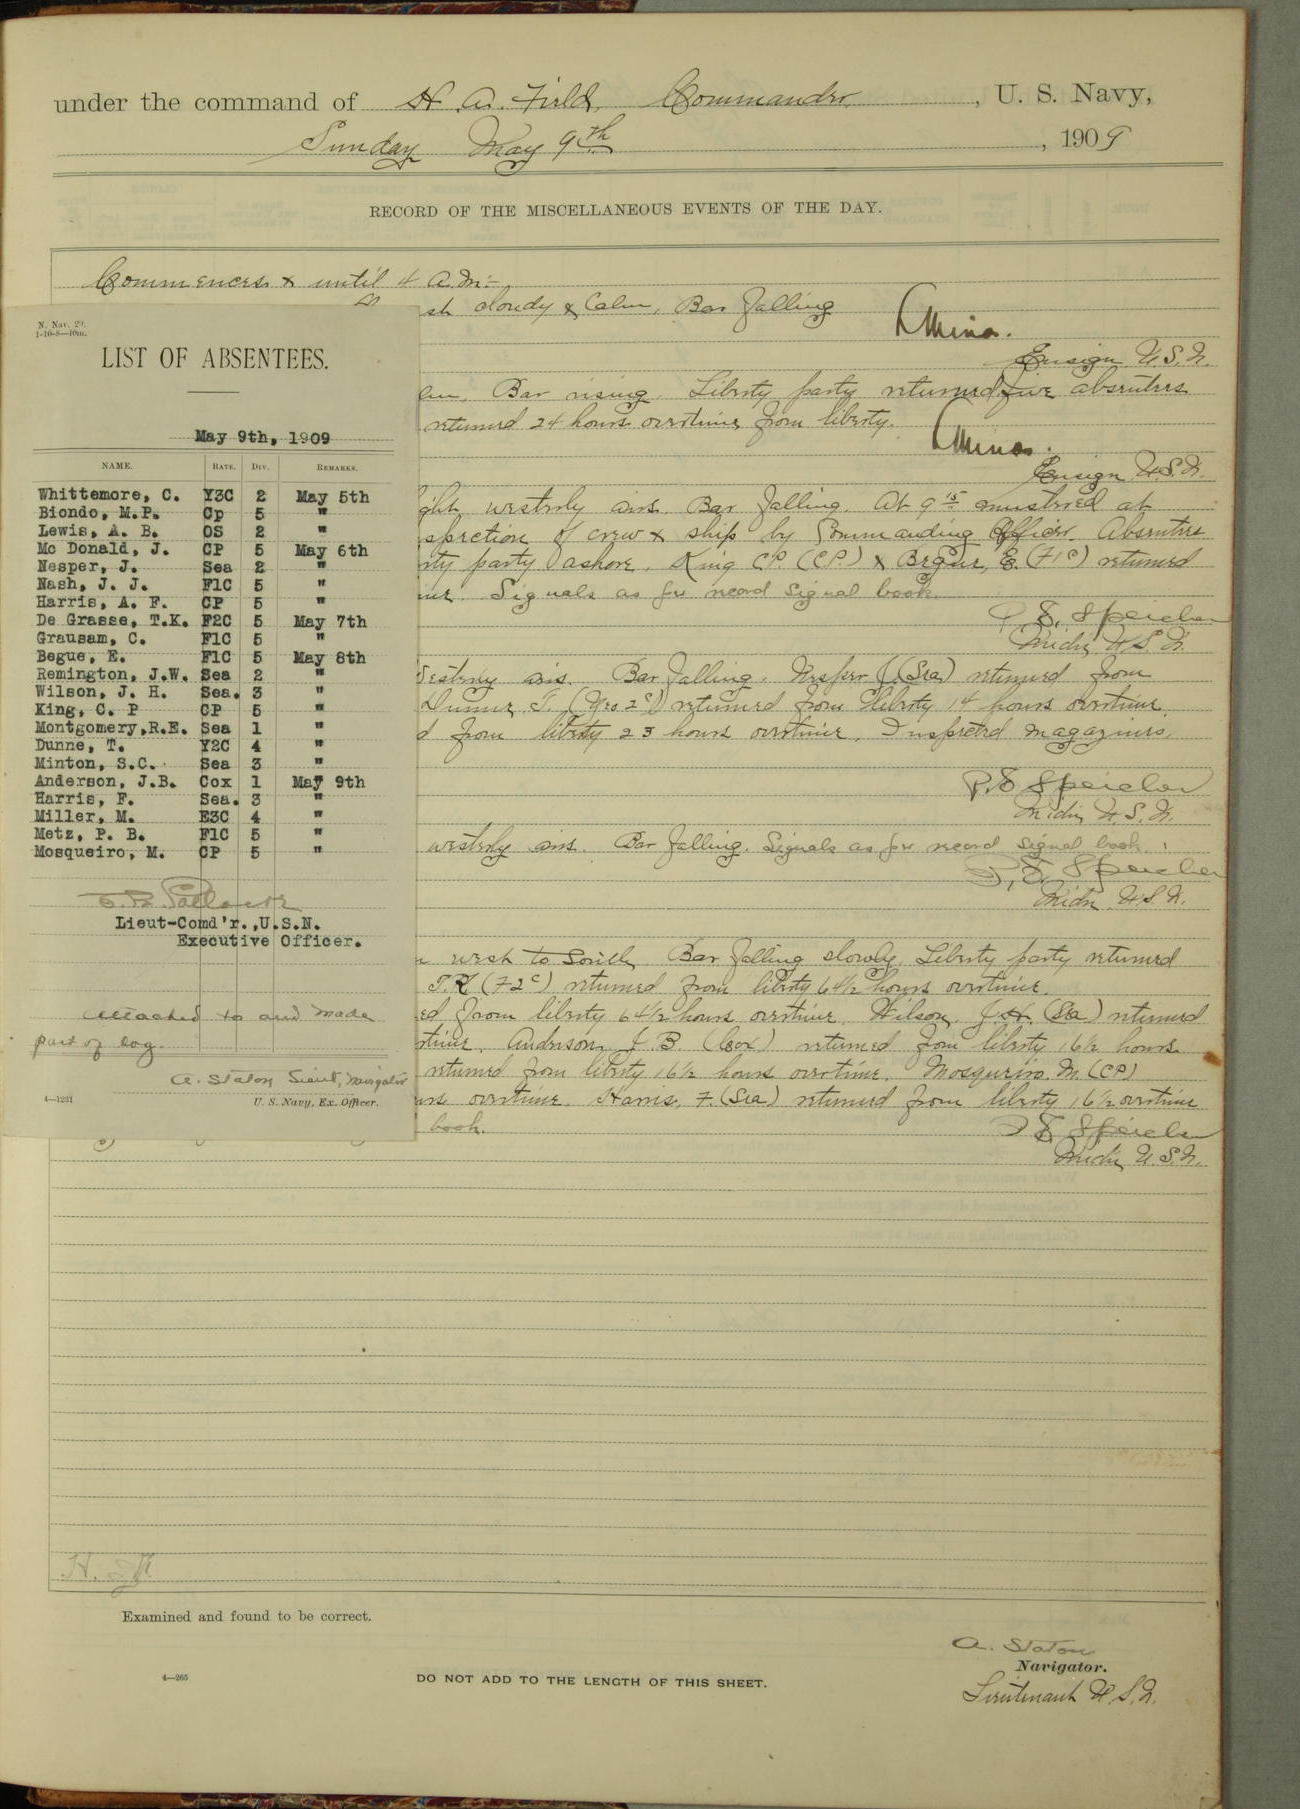 under the command of H. A. Field, Commander, U. S. Navy,
Sunday May 9th, 1909
RECORD OF THE MISCELLANEOUS EVENTS OF THE DAY.
Commences & until 4 A.M:-
cloudy & Calm, Bar falling
Ensign U.S.N.
N. Nav. 29.
1-10-8—10m.
LIST OF ABSENTEES.
May 9th, 1909
NAME. RATE. DIV. REMARKS.
Whittemore, C. Y3C 2 May 5th
Biondo, M.P. Cp 5 "
Lewis, A. B. OS 2 "
Mc Donald, J. CP 5 May 6th
Nesper, J. Sea 2 "
Nash, J. J. F1C 5 "
Harris, A. F. CP 5 "
De Grasse, T.K. F2C 5 May 7th
Grausam, C. F1C 5 "
Begue, E. F1C 5 May 8th
Remington, J.W. Sea 2 "
Wilson, J. H. Sea. 3 "
King, C. P CP 5 "
Montgomery,R.E. Sea 1 "
Dunne, T. Y2C 4 "
Minton, S.C. Sea 3 "
Anderson, J.B. Cox 1 May 9th
Harris, F. Sea. 3 "
Miller, M. E3C 4 "
Metz, P. B. F1C 5 "
Mosqueiro, M. CP 5 "
Lieut-Comd'r.,U.S.N.
Executive Officer.
Attached to and made
part of log.
A. Staton Lieut, Navigator
4—1231 U. S. Navy, Ex. Officer.
Bar rising. Liberty party returned five absentees
returned 24 hours overtime from liberty.
Ensign U.S.N.
westerly airs. Bar falling. At 9 15 mustered at
spection of crew & ship by Commanding Officer. Absentees
party ashore. King C.P. (CP.) & Begue, E. (F1c) returned
Signals as per record signal book
P. E. Speicher
Midn U.S.N.
Westerly airs. Bar falling. Nesper J. (Sea) returned from
Dunne, T. (Yeo 2c) returned from liberty 14 hours overtime.
d from liberty 23 hours overtime. Inspected magazines.
P. E. Speicher
Midn U.S.N.
westerly airs. Bar falling. Signals as per record signal book.
P. E. Speicher
Midn U.S.N.
west to South Bar falling slowly. Liberty party returned
T.K (F2c) returned from liberty 64½ hours overtime.
ed from liberty 64½ hours overtime. Wilson, J.H. (Sea) returned
rtime. Anderson J. B. (Cox) returned from liberty 16½ hours
returned from liberty 16½ hours overtime. Mosqueiro. M. (CP)
urs overtime. Harris, F. (Sea) returned from liberty 16½ overtime
book.
P. E. Speicher
Midn U.S.N.
Examined and found to be correct.
A. Staton
Navigator.
Lieutenant U.S.N.
4—265
DO NOT ADD TO THE LENGTH OF THIS SHEET.